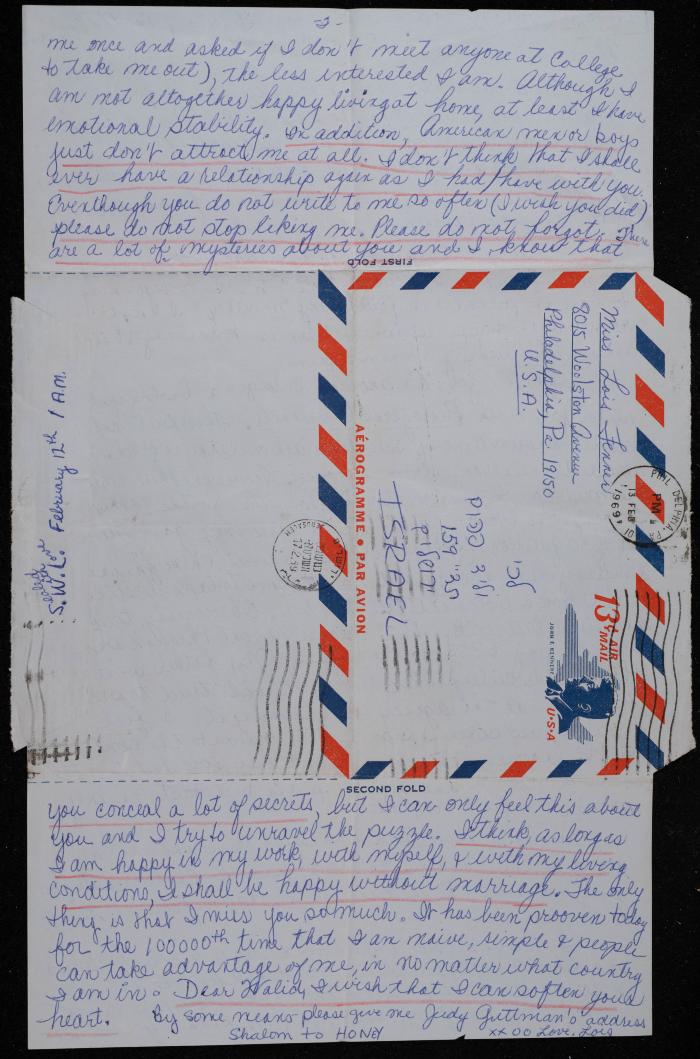 -2-
me once and asked if I don't meet anyone at College
to take me out), the less interested I am. Although I
am not altogether happy living at home, at least I have
emotional stability. In addition, American men or boys
just don't attract me at all. I don't think that I shall
ever have a relationship again as I had/have with you.
Eventhough you do not write to me so often (I wish you did)
please do not stop liking me. Please do not forget. There
are a lot of mysteries about you and I know that
FIRST FOLD
Miss Lois Fenner
8015 Woolston Avenue
Philadelphia, Pa 19150
U.S.A.
PHILADELPHIA, PA
PM
13 FEB
1969
13¢ AIR MAIL
JOHN F. KENNEDY
U·S·A
ISRAEL
AÉROGRAMME • PAR AVION
JERUSALEM
17.2.69
S.W.L. February 12th 1 A.M.
SECOND FOLD
you conceal a lot of secrets, but I can only feel this about
you and I try to unravel the puzzle. I think, as long as
I am happy in my work, with myself, & with my living
conditions, I shall be happy without marriage. The only
thing is that I miss you so much. It has been prooven today
for the 100000th time that I am naive, simple & people
can take advantage of me, in no matter what country
I am in. Dear Walid, I wish that I can soften your
heart. By some means please give me Judy Guttman's address
Shalom to HONEY xx OO Love, Lois